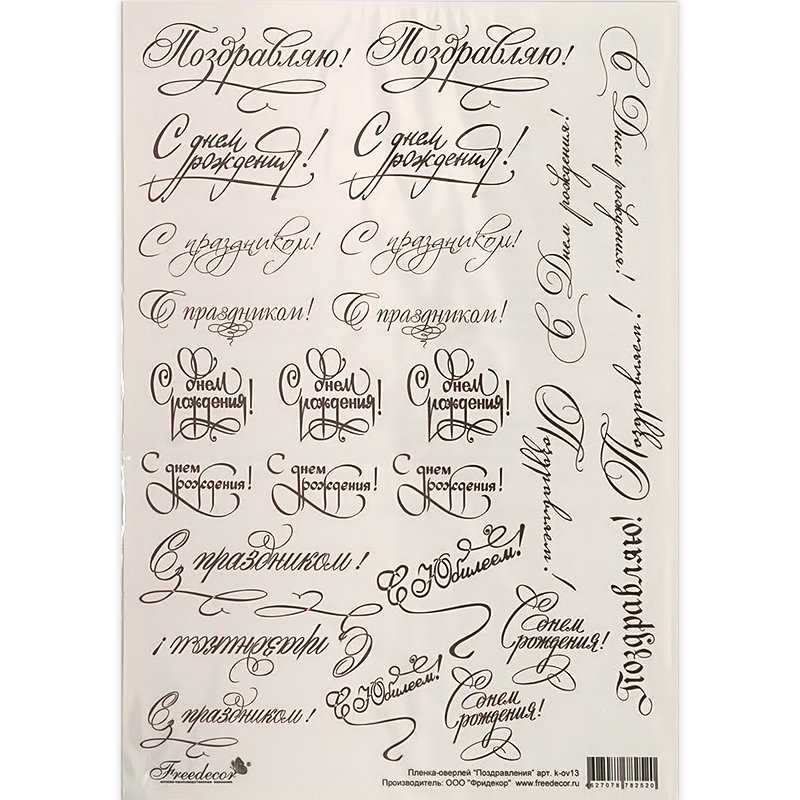 Поздравляю! Поздравляю!
С днем
рождения!
С днем
рождения!
С праздником! С праздником!
С праздником! С праздником!
С днем
рождения!
С днем
рождения!
С днем
рождения!
С днем
рождения!
С днем
рождения!
С днем
рождения!
С праздником!
С Юбилеем!
С праздником!
С днем
рождения!
С праздником!
С Юбилеем!
С днем
рождения!
С Днем рождения!
С Днем рождения!
Поздравляем!
Поздравляем!
Поздравляю!
Freedecor
Пленка-оверлей "Поздравления" арт. k-ov13
Производитель: ООО "Фридекор" www.freedecor.ru
4627078782520